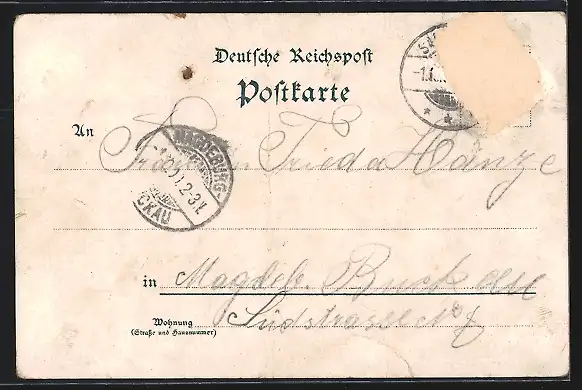 Deutsche Reichspost
Postkarte
An
Fräulein Frieda Hanze
MAGDEBURG-
2-3 V.
CKAU
in Magdeb. Buckau
Wohnung
(Straße und Hausnummer)
Südstrasse